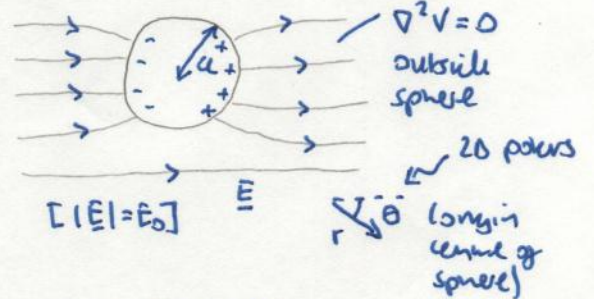 ∇²V=0
outside
sphere
a
2D polars
E
[|E|=E₀]
r
θ
(origin
centre of
sphere)